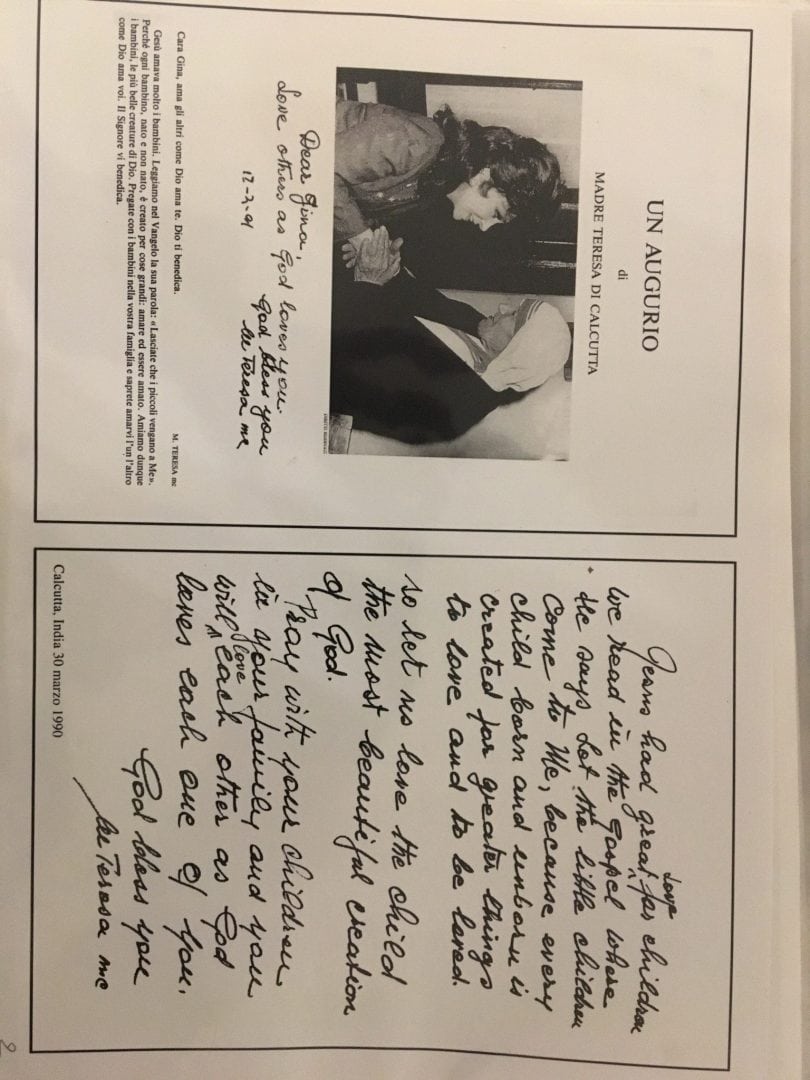 UN AUGURIO
di
MADRE TERESA DI CALCUTTA
Dear Gina,
Love others as God loves you.
God bless you
M Teresa mc
Cara Gina, ama gli altri come Dio ama te. Dio ti benedica.
M. TERESA mc
Gesù amava molto i bambini. Leggiamo nel Vangelo la sua parola: «Lasciate che i piccoli vengano a Me».
Perché ogni bambino, nato e non nato, è creato per cose grandi: amare ed essere amato. Amiamo dunque
i bambini, le più belle creature di Dio. Pregate con i bambini nella vostra famiglia e saprete amarvi l'un l'altro
come Dio ama voi. Il Signore vi benedica.
Jesus had great love for children
we read in the Gospel where
He says Let the little children
Come to Me, because every
child born and unborn is
created for greater things
to love and to be loved.
so let us love the child
the most beautiful creation
of God.
Pray with your children
in your family and you
will love each other as God
loves each one of you.
God bless you
M Teresa mc
Calcutta, India 30 marzo 1990
2